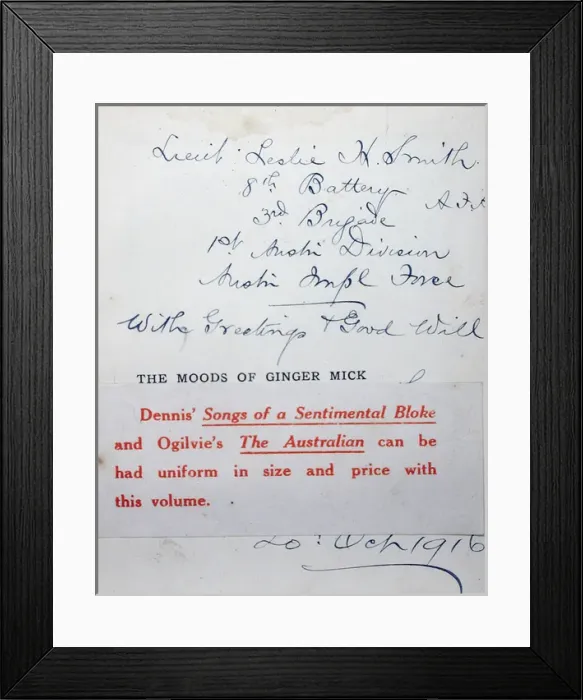 Lieut. Leslie H. Smith.
8th Battery
A.F.A
3rd Brigade
1st Austn Division
Austn Impl Force
With Greetings & Good Will
THE MOODS OF GINGER MICK
Dennis' Songs of a Sentimental Bloke
and Ogilvie's The Australian can be
had uniform in size and price with
this volume.
20: Oct 1916